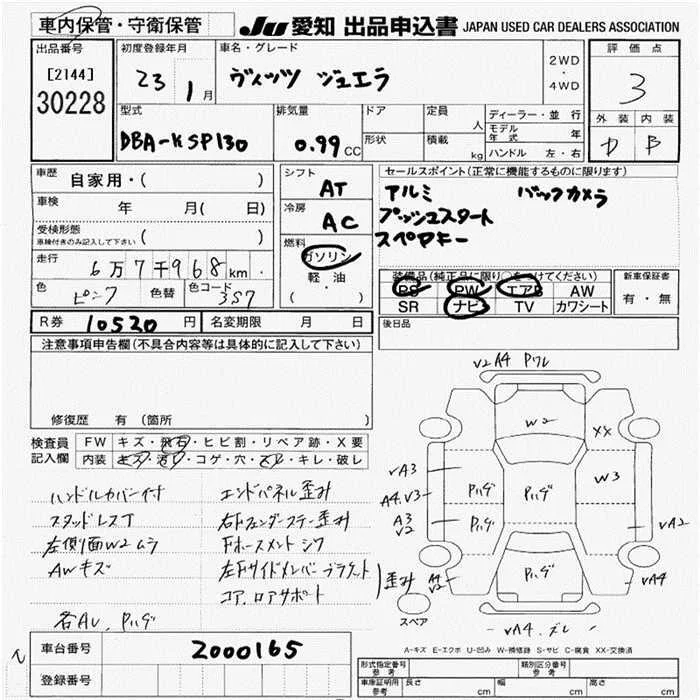 車内保管・守衛保管 JU 愛知 出品申込書 JAPAN USED CAR DEALERS ASSOCIATION
出品番号 [2144] 30228
初度登録年月 23 1月
車名・グレード ヴィッツ ジュエラ
2WD ・ 4WD
評価点 3
外装 D 内装 B
型式 DBA-KSP130
排気量 0.99 CC
ドア 形状
定員 人 積載 kg
ディーラー・並行
モデル年式 年
ハンドル 左・右
車歴 自家用・( )
車検 年 月( 日)
受検形態 車検付きのみ記入して下さい ( )
走行 6万7千968km
色 ピンク 色替 色コード 3S7
シフト AT
冷房 AC
燃料 ガソリン 軽・油 ( )
セールスポイント(正常に機能するものに限ります)
アルミ バックカメラ
プッシュスタート
スペアキー
装備品(純正品に限り○をつけてください)
PS PW エアB AW
SR ナビ TV カワシート
新車保証書 有・無
R券 10520円 名変期限 月 日
後日品
注意事項申告欄(不具合内容等は具体的に記入して下さい)
修復歴 有(箇所 )
検査員記入欄
FW キズ・飛石・ヒビ割・リペア跡・X要
内装 キズ・汚レ・コゲ・穴・スレ・キレ・破レ
ハンドルカバー付
スタッドレスT
左側面W2ムラ
AWキズ
各AL、Pハゲ
エンドパネル歪み
右Fフェンダーステー歪み
Fホースメントジワ
左Fサイドメンバーブラケット
コア、ロアサポート
歪み
V2 A4 Pワレ
W2
XX
VA3
A4.V3
A3
V2
Pハゲ
Pハゲ
Pハゲ
W3
VA2
A4
V2
Pハゲ
VA4
スペア
VA4.ズレ
A-キズ E-エクボ U-凹み W-補修跡 S-サビ C-腐食 XX-交換済
車台番号 2000165
登録番号
形式指定番号 参考 類別区分番号 参考
車庫証明用 参考 長さ cm 幅 cm 高さ cm